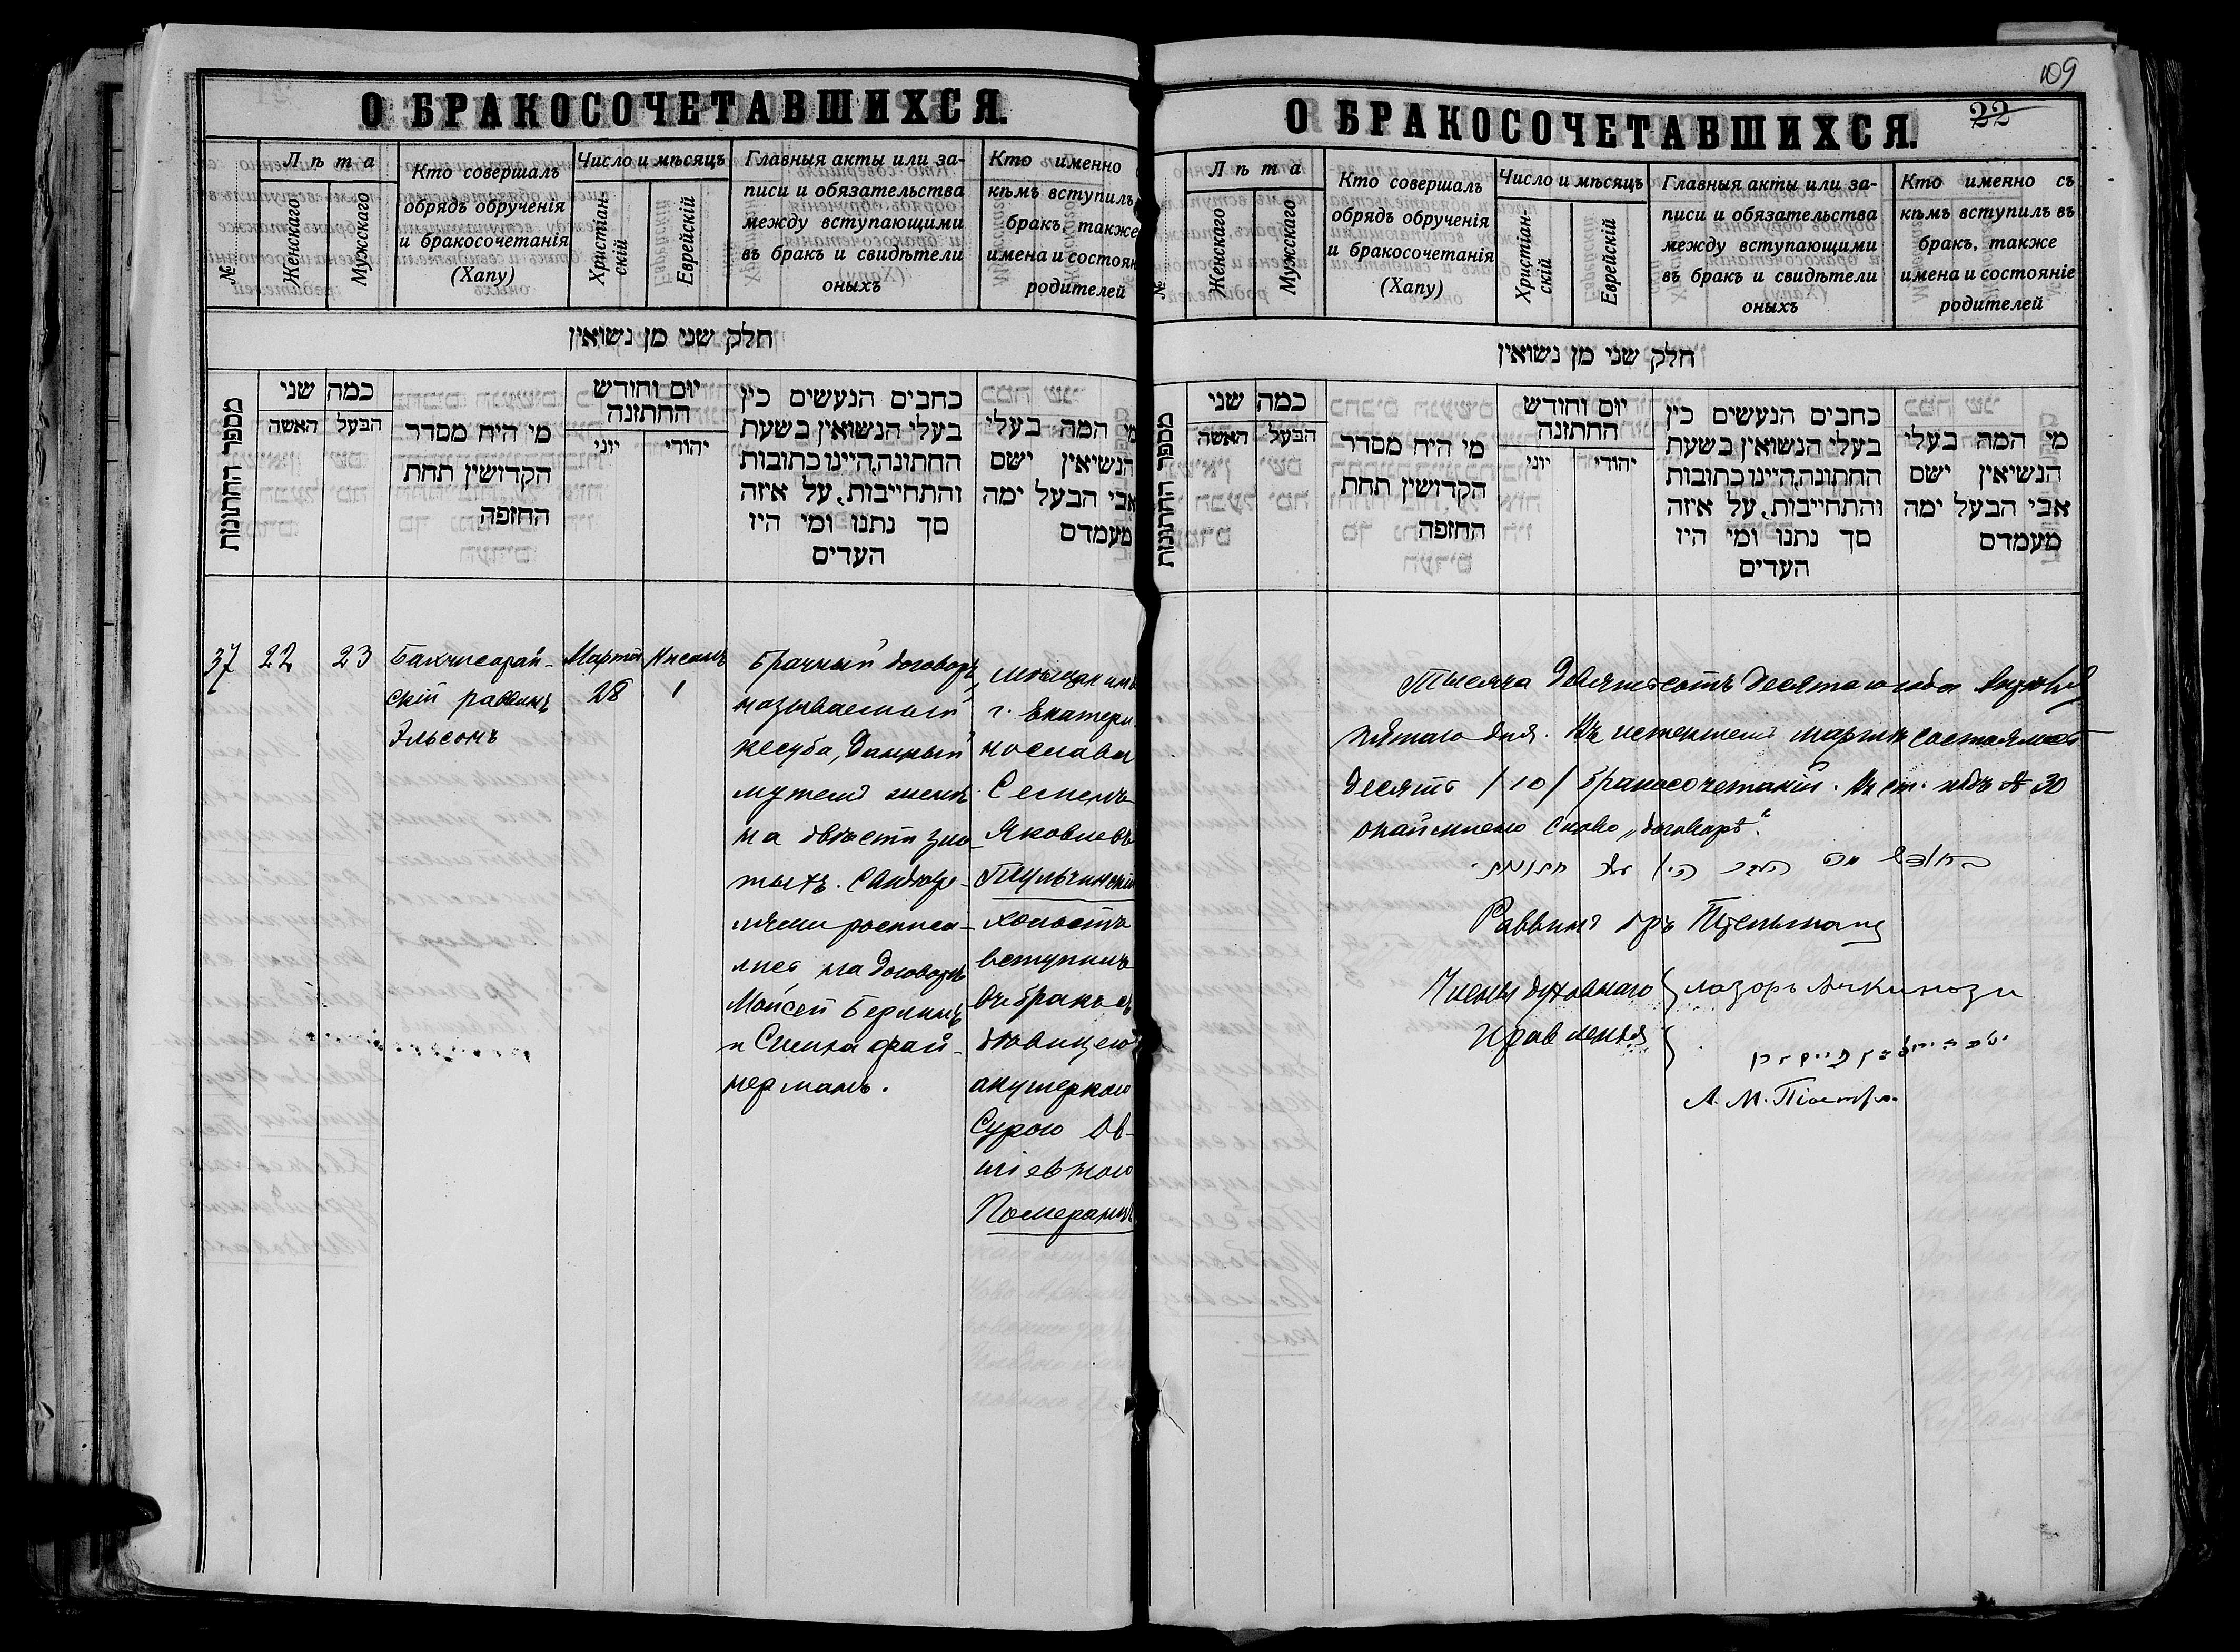 О БРАКОСОЧЕТАВШИХСЯ.
№
Лѣта
Женскаго
Мужскаго
Кто совершалъ
обрядъ обрученія
и бракосочетанія
(Хапу)
Число и мѣсяцъ
Христіан-
скій
Еврейскій
Главныя акты или за-
писи и обязательства
между вступающими
въ бракъ и свидѣтели
оныхъ
Кто именно
кѣмъ вступилъ
бракъ, также
имена и состоян
родителей
חלק שני מן נשואין
מספר החתונות
כמה שני
האשה
הבעל
מי היח מסדר
הקדושין תחת
החזפה
יום וחודש
החתזנה
יוני
יהודי
כחבים הנעשים כין
בעלי הנשואין בשעת
החתונה,היינו כתובות
והתחייבות, על איזה
סך נתנו ומי היז
העדים
מי המה בעלי
הנשיאין ישם
אבי הבעל ימה
מעמדם
37
22
23
Бахчисарай-
скій раввинъ
Эльсонъ
Марта
28
Нисанъ
1
Брачный договоръ,
называемый
кесуба, данный
мужемъ женѣ
на двѣсти зло-
тыхъ. Свидѣте-
лями росписа-
лись на договорѣ
Мойсей Берлинъ
и Симха Фай-
нерманъ.
мѣщанинъ
г. Екатери-
нослава
Семенъ
Яковлевъ
Тульчинскій
холостъ
вступилъ
въ бракъ съ
дѣвицею
акушеркою
Сурою Ов-
шіевною
Померанц
109
22
О БРАКОСОЧЕТАВШИХСЯ.
№
Лѣта
Женскаго
Мужскаго
Кто совершалъ
обрядъ обрученія
и бракосочетанія
(Хапу)
Число и мѣсяцъ
Христіан-
скій
Еврейскій
Главныя акты или за-
писи и обязательства
между вступающими
въ бракъ и свидѣтели
оныхъ
Кто именно съ
кѣмъ вступилъ въ
бракъ, также
имена и состояніе
родителей
חלק שני מן נשואין
מספר החתונות
כמה שני
האשה
הבעל
מי היח מסדר
הקדושין תחת
החזפה
יום וחודש
החתזנה
יוני
יהודי
כחבים הנעשים כין
בעלי הנשואין בשעת
החתונה,היינו כתובות
והתחייבות, על איזה
סך נתנו ומי היז
העדים
מי המה בעלי
הנשיאין ישם
אבי הבעל ימה
מעמדם
Тысяча девятьсотъ десятаго года Апрѣля
пятаго дня. Въ истекшемъ мартѣ состоялось
десять /10/ бракосочетаній. Въ ст. подъ № 30
слово „договоръ“.
Раввинъ
Члены духовнаго
Правленія
лазоръ Ачкинози
А. М.